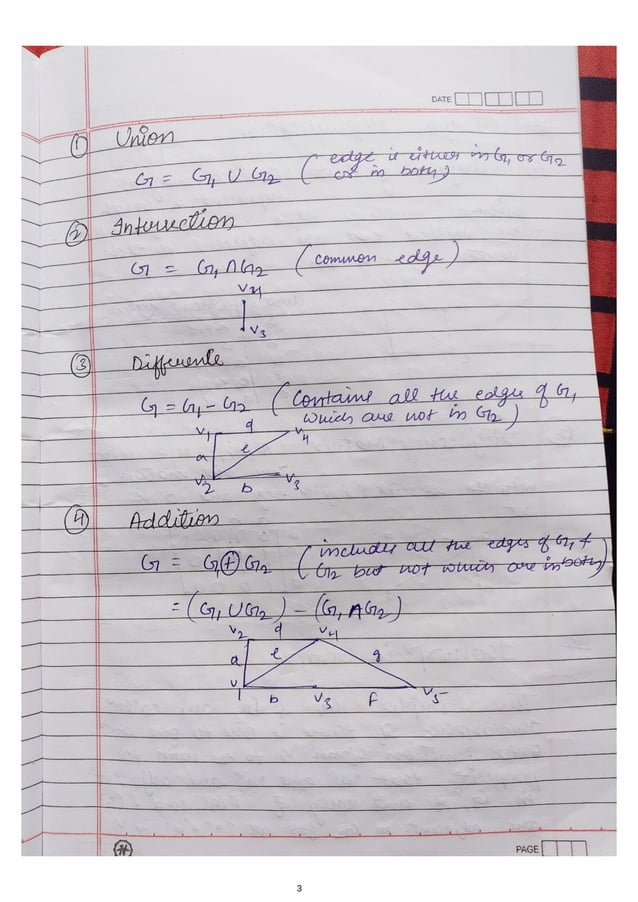 DATE
① Union
G = G₁ ∪ G₂ (edge is either in G₁ or G₂
or in both)
② Intersection
G = G₁ ∩ G₂ (common edge)
V₄
V₃
③ Difference
G = G₁ - G₂ (Contains all the edges of G₁
which are not in G₂)
V₁ d V₄
a e
V₂ b V₃
④ Addition
G = G₁ ⊕ G₂ (includes all the edges of G₁ &
G₂ but not which are in both)
= (G₁ ∪ G₂) - (G₁ ∩ G₂)
V₂ d V₄
a e g
V₁ b V₃ f V₅
PAGE
3